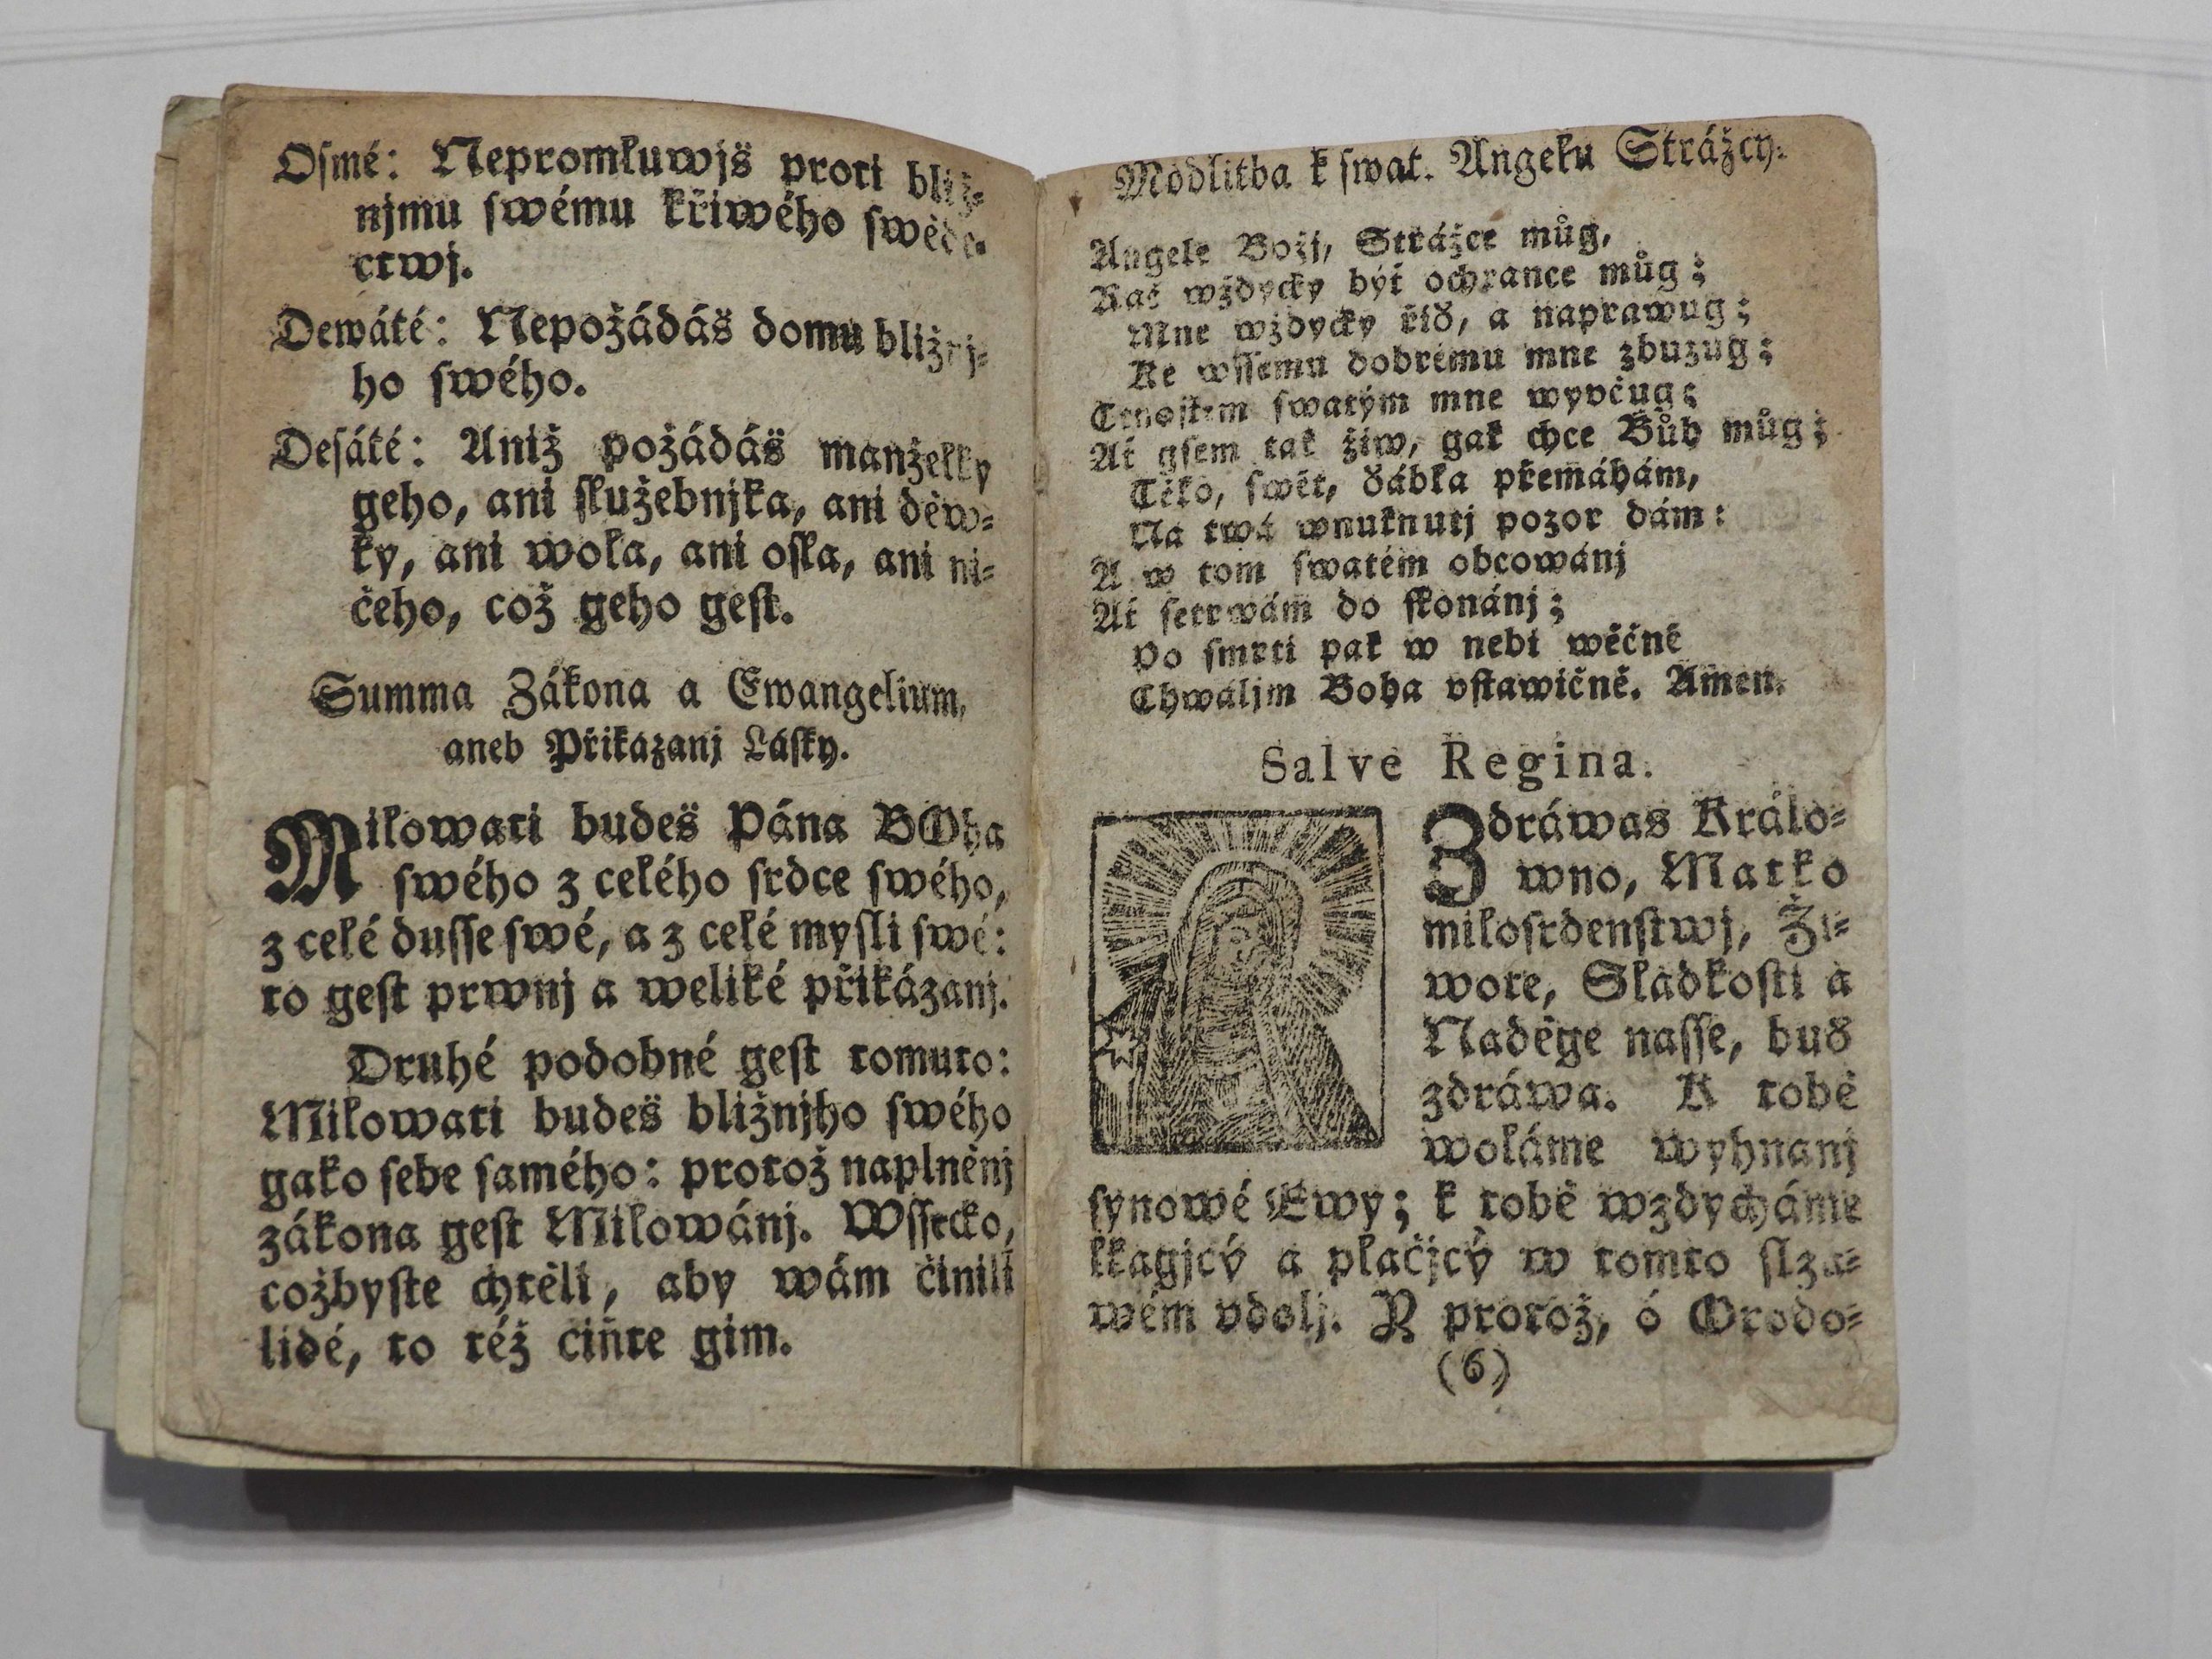 Osmé: Nepromluwjš proti bliž-
njmu swému křiwého swěde-
ctwj.
Dewáté: Nepožádáš domu bližnj-
ho swého.
Desáté: Aniž požádáš manželky
geho, ani služebnjka, ani děw-
ky, ani wola, ani osla, ani ni-
čeho, což geho gest.
Summa Zákona a Ewangelium,
aneb Přikázanj Lásky.
Milowati budeš Pána BOha
swého z celého srdce swého,
z celé dusse swé, a z celé mysli swé:
to gest prwnj a weliké přikázanj.
Druhé podobné gest tomuto:
Milowati budeš bližnjho swého
gako sebe samého: protož naplněnj
zákona gest Milowánj. Wssecko,
cožbyste chtěli, aby wám činili
lidé, to též čiňte gim.
Modlitba k swat. Angelu Strážcy.
Angele Božj, Strážce můg,
Rač wždycky být ochrance můg;
Mne wždycky řiď, a naprawug;
Ke wssemu dobrému mne zbuzug;
Ctnostem swatým mne wyvčug;
Ať gsem tak žiw, gak chce Bůh můg;
Tělo, swět, ďábla přemáhám,
Na twá wnuknutj pozor dám:
A w tom swatém obcowánj
Ať setrwám do skonánj;
Po smrti pak w nebi wěčně
Chwáljm Boha vstawičně. Amen.
Salve Regina.
Zdráwas Králo-
wno, Matko
milosrdenstwj, Ži-
wote, Sladkosti a
Naděge nasse, buď
zdráwa. K tobě
woláme wyhnanj
synowé Ewy; k tobě wzdycháme
lkagjcý a plačjcý w tomto slza-
wém vdolj. Y protož, ó Orodo-
(6)